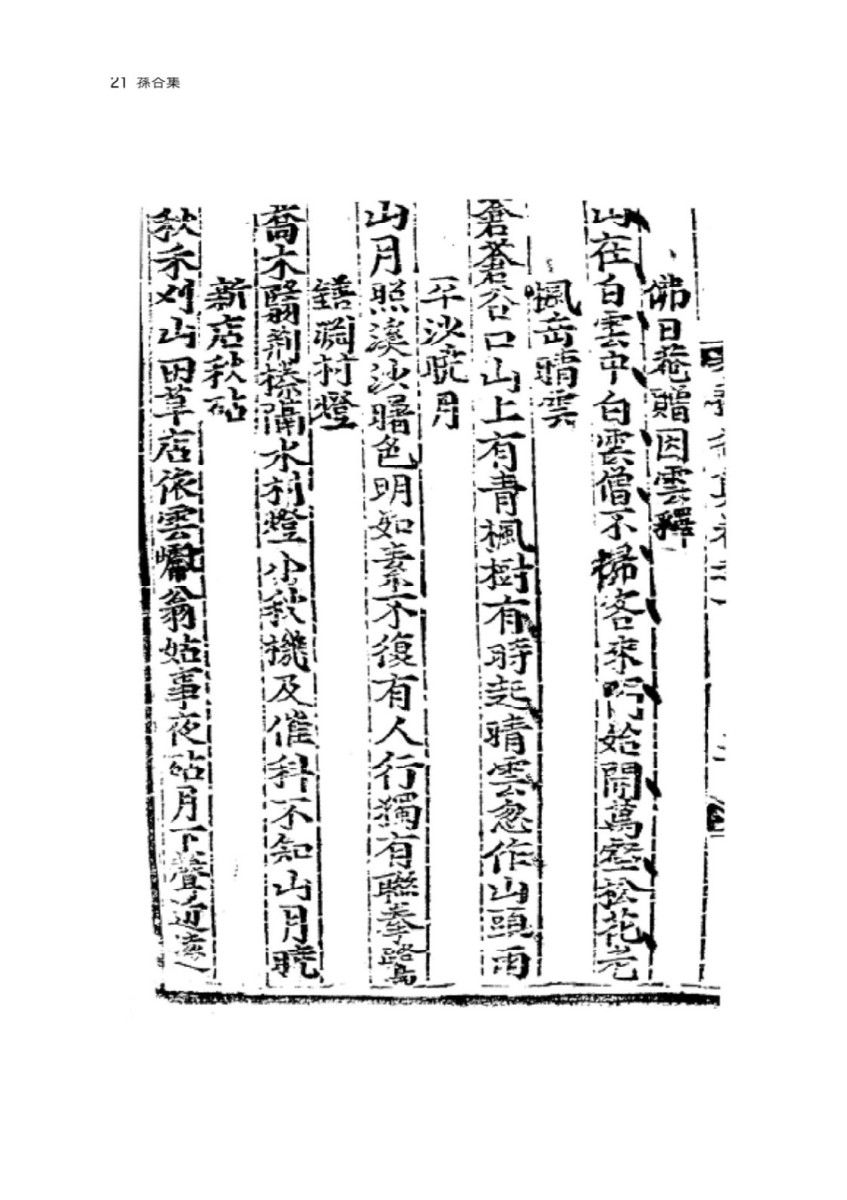 21 孫合集
佛日菴贈因雲釋
山在白雲中白雲僧不掃客來門始開萬壑松花老
楓岳晴雲
蒼蒼谷口山上有青楓樹有時起晴雲忽作山頭雨
平沙曉月
山月照溪沙曙色明如素不復有人行獨有聯拳鷺
村燈
喬木翳荊榛隔水村燈少秋機及催科不知山月曉
新店秋砧
秋禾刈山田草店依雲嶠翁姑事夜砧月下聲近遠